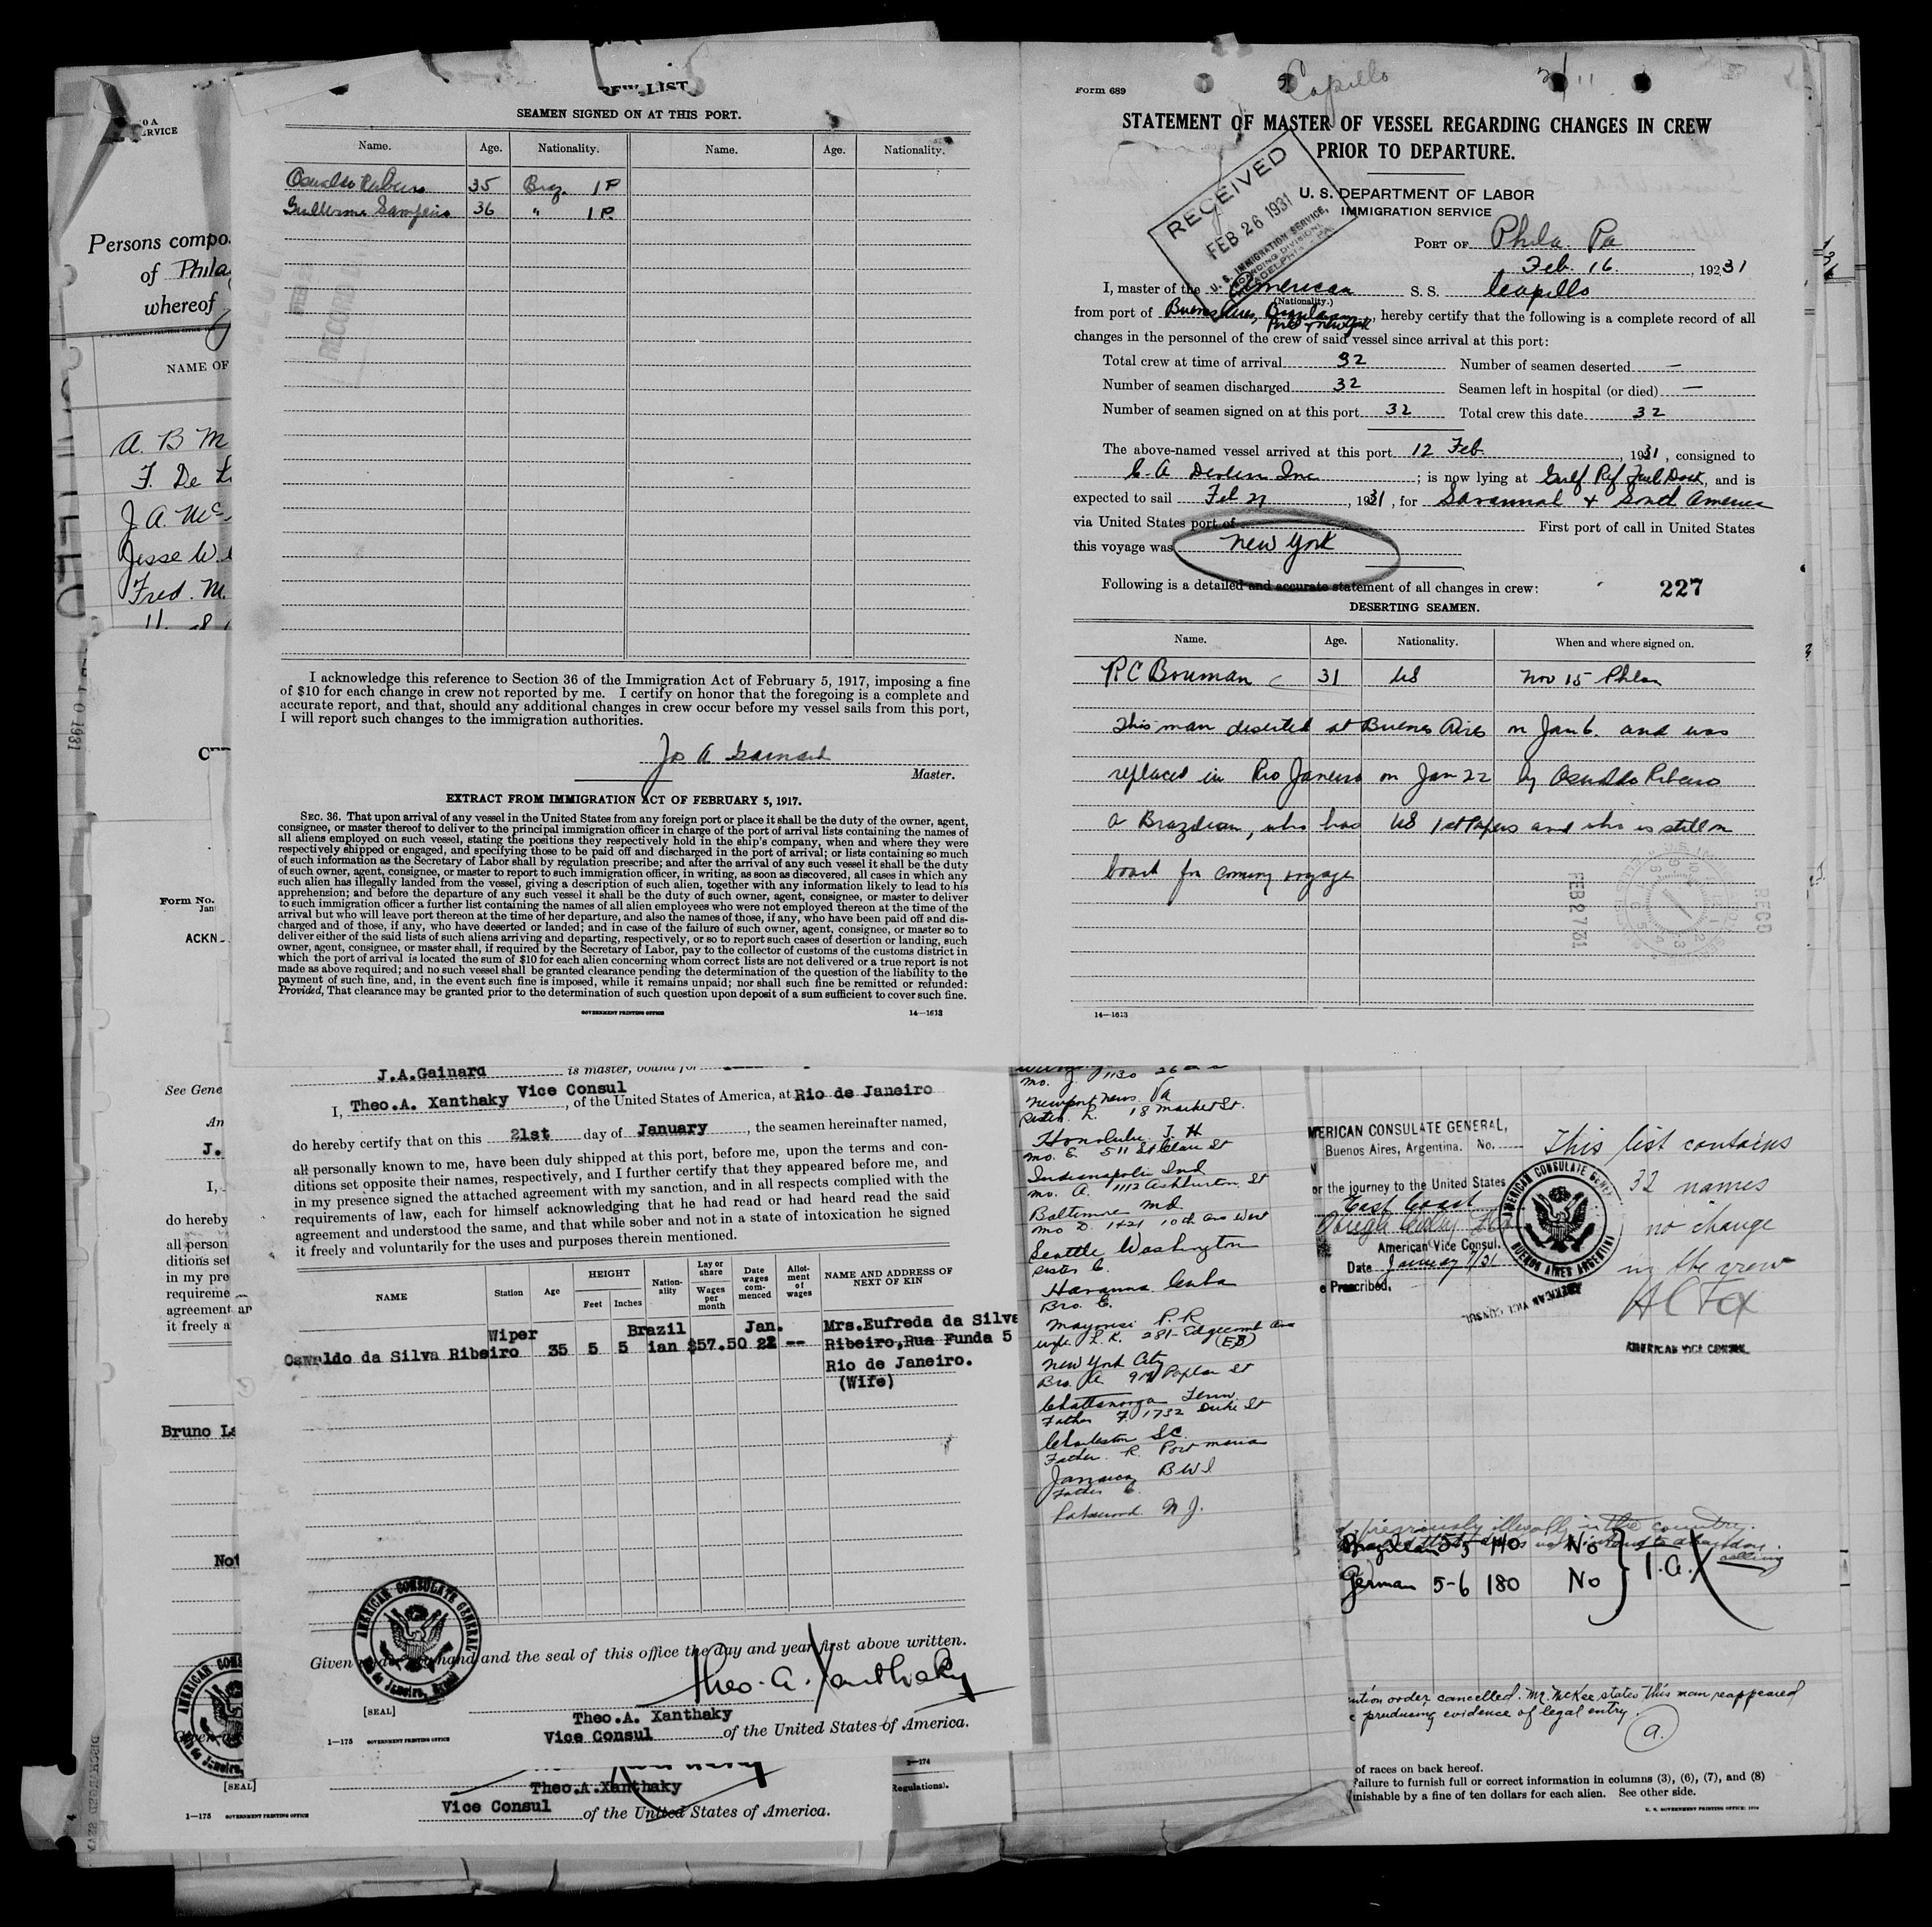 REW LIST
SEAMEN SIGNED ON AT THIS PORT.
Name. Age. Nationality. Name. Age. Nationality.
Oswaldo Ribeiro 35 Braz. 1 P
Guillerme Sampaio 36 " 1 P.
I acknowledge this reference to Section 36 of the Immigration Act of February 5, 1917, imposing a fine
of $10 for each change in crew not reported by me. I certify on honor that the foregoing is a complete and
accurate report, and that, should any additional changes in crew occur before my vessel sails from this port,
I will report such changes to the immigration authorities.
Jos A Gainard
Master.
EXTRACT FROM IMMIGRATION ACT OF FEBRUARY 5, 1917.
SEC. 36. That upon arrival of any vessel in the United States from any foreign port or place it shall be the duty of the owner, agent,
consignee, or master thereof to deliver to the principal immigration officer in charge of the port of arrival lists containing the names of
all aliens employed on such vessel, stating the positions they respectively hold in the ship's company, when and where they were
respectively shipped or engaged, and specifying those to be paid off and discharged in the port of arrival; or lists containing so much
of such information as the Secretary of Labor shall by regulation prescribe; and after the arrival of any such vessel it shall be the duty
of such owner, agent, consignee, or master to report to such immigration officer, in writing, as soon as discovered, all cases in which any
such alien has illegally landed from the vessel, giving a description of such alien, together with any information likely to lead to his
apprehension; and before the departure of any such vessel it shall be the duty of such owner, agent, consignee, or master to deliver
to such immigration officer a further list containing the names of all alien employees who were not employed thereon at the time of the
arrival but who will leave port thereon at the time of her departure, and also the names of those, if any, who have been paid off and dis-
charged and of those, if any, who have deserted or landed; and in case of the failure of such owner, agent, consignee, or master so to
deliver either of the said lists of such aliens arriving and departing, respectively, or so to report such cases of desertion or landing, such
owner, agent, consignee, or master shall, if required by the Secretary of Labor, pay to the collector of customs of the customs district in
which the port of arrival is located the sum of $10 for each alien concerning whom correct lists are not delivered or a true report is not
made as above required; and no such vessel shall be granted clearance pending the determination of the question of the liability to the
payment of such fine, and, in the event such fine is imposed, while it remains unpaid; nor shall such fine be remitted or refunded:
Provided, That clearance may be granted prior to the determination of such question upon deposit of a sum sufficient to cover such fine.
GOVERNMENT PRINTING OFFICE 14—1613
Form 689
Capillo 2/11
STATEMENT OF MASTER OF VESSEL REGARDING CHANGES IN CREW
PRIOR TO DEPARTURE.
U. S. DEPARTMENT OF LABOR
IMMIGRATION SERVICE
RECEIVED
FEB 26 1931
U. S. IMMIGRATION SERVICE,
PORT OF Phila. Pa
Feb. 16. , 19231
I, master of the American S. S. Capillo
(Nationality.)
from port of Buenos Aires, , hereby certify that the following is a complete record of all
changes in the personnel of the crew of said vessel since arrival at this port:
Total crew at time of arrival 32 Number of seamen deserted —
Number of seamen discharged 32 Seamen left in hospital (or died) —
Number of seamen signed on at this port 32 Total crew this date 32
The above-named vessel arrived at this port 12 Feb. , 1931 , consigned to
C. A Devlin Inc ; is now lying at Gulf Ref Fuel Dock, and is
expected to sail Feb 27 , 1931 , for Savannah & South America
via United States port of First port of call in United States
this voyage was New York
Following is a detailed and accurate statement of all changes in crew: 227
DESERTING SEAMEN.
Name. Age. Nationality. When and where signed on.
R C Bouman 31 US Nov 15 Phila
This man deserted at Buenos Aires on Jan 6. and was
replaced in Rio Janeiro on Jan 22 by Oswaldo Ribeiro
a Brazilian, who has US 1st Papers and who is still on
board for coming voyage
FEB 27 '31
REC'D
14—1613
Persons compo
of Phila
whereof
NAME OF
A. B M
F. De L
J A. Mc
Jesse W.
Fred. M.
Form No.
ACKN
See Gene
An
J.
I,
do hereby
all person
ditions set
in my pre
requireme
agreement an
it freely a
Bruno La
Not
[SEAL]
1—175 GOVERNMENT PRINTING OFFICE
J.A.Gainard is master, bound for
I, Theo.A. Xanthaky Vice Consul, of the United States of America, at Rio de Janeiro
do hereby certify that on this 21st day of January , the seamen hereinafter named,
all personally known to me, have been duly shipped at this port, before me, upon the terms and con-
ditions set opposite their names, respectively, and I further certify that they appeared before me, and
in my presence signed the attached agreement with my sanction, and in all respects complied with the
requirements of law, each for himself acknowledging that he had read or had heard read the said
agreement and understood the same, and that while sober and not in a state of intoxication he signed
it freely and voluntarily for the uses and purposes therein mentioned.
NAME Station Age HEIGHT Feet Inches Nation-ality Lay or share Wages per month Date wages com-menced Allot-ment of wages NAME AND ADDRESS OF NEXT OF KIN
Oswaldo da Silva Ribeiro Wiper 35 5 5 Brazil ian $57.50 Jan. 22 -- Mrs.Eufreda da Silva
Ribeiro,Rua Funda 5
Rio de Janeiro.
(Wife)
Given under my hand and the seal of this office the day and year first above written.
AMERICAN CONSULATE GENERAL
Rio de Janeiro, Brazil
Theo. A. Xanthaky
[SEAL]
Theo.A. Xanthaky
Vice Consul of the United States of America.
1—175 GOVERNMENT PRINTING OFFICE
Theo.A.Xanthaky
Vice Consul of the United States of America.
1—174
Regulations).
Mo. J. 1130 26
Newport News Va
Sister. R. 18 Market St.
Honolulu T. H
Mo. E. 511 St Clair St
Indianapolis Ind
Mo. A. 1112 Ashburton St
Baltimore Md.
Mo D. 1421 10th Ave West
Seattle Washington
Sister C.
Havanna Cuba
Bro. E.
P. R
Wife L. K. 281 Edgecomb Ave
New York City
Bro. A. Poplar St
Chattanooga Tenn.
Father F. 1732 Duke St
Charleston S.C.
Father R. Port Maria
Jamaica B W I
Father C.
N J.
MERICAN CONSULATE GENERAL,
Buenos Aires, Argentina. No.
or the journey to the United States
East Coast
American Vice Consul.
Date January 7/31
e Prescribed.
AMERICAN CONSULATE GENERAL
BUENOS AIRES ARGENTINA
This list contains
32 names
no change
in the crew
H C Fox
AMERICAN VICE CONSUL
previously illegally in the country.
Brazilian 5-5 140 No
German 5-6 180 No I.a.
ention order cancelled. Mr. McKee states this man reappeared
producing evidence of legal entry.
a.
of races on back hereof.
Failure to furnish full or correct information in columns (3), (6), (7), and (8)
unishable by a fine of ten dollars for each alien. See other side.